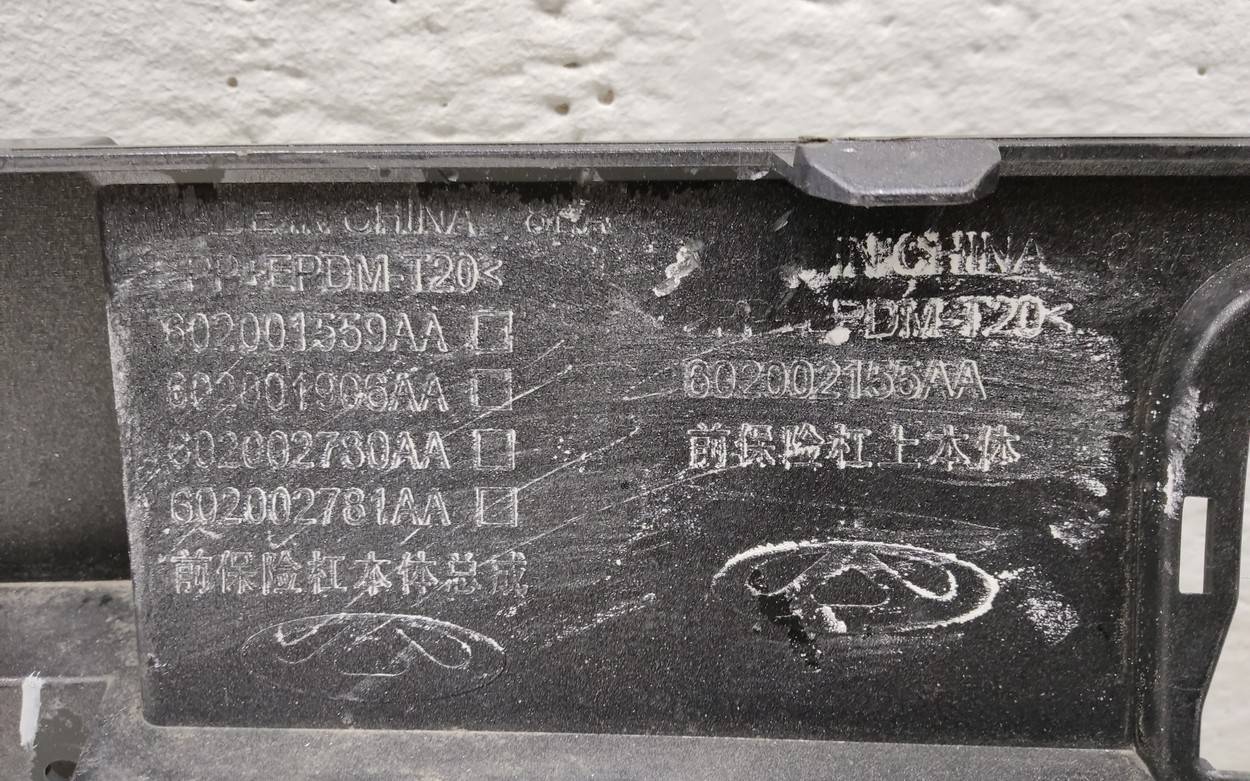 MADE IN CHINA
>PP+EPDM-T20<
602001559AA
602001906AA
602002780AA
602002781AA
前保险杠本体总成
IN CHINA
EPDM-T20<
602002155AA
前保险杠上本体